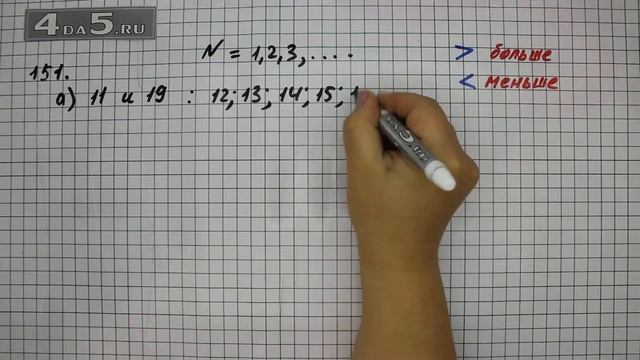 4DA5.RU
N = 1,2,3,....
> больше
151.
< меньше
а) 11 и 19 : 12; 13; 14; 15; 1